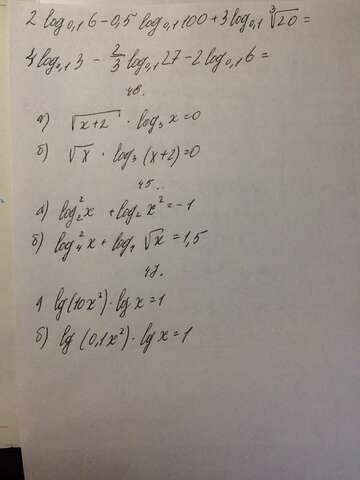 2 log₀,₁ 6 - 0,5 log₀,₁ 100 + 3 log₀,₁ ∛20 =
4 log₀,₁ 3 - 2/3 log₀,₁ 27 - 2 log₀,₁ 6 =
48.
а) √(x+2) · log₃ x = 0
б) √x · log₃ (x+2) = 0
45.
а) log₂² x + log₂ x² = -1
б) log₄² x + log₄ √x = 1,5
47.
lg(10x²) · lg x = 1
б) lg (0,1x²) · lg x = 1